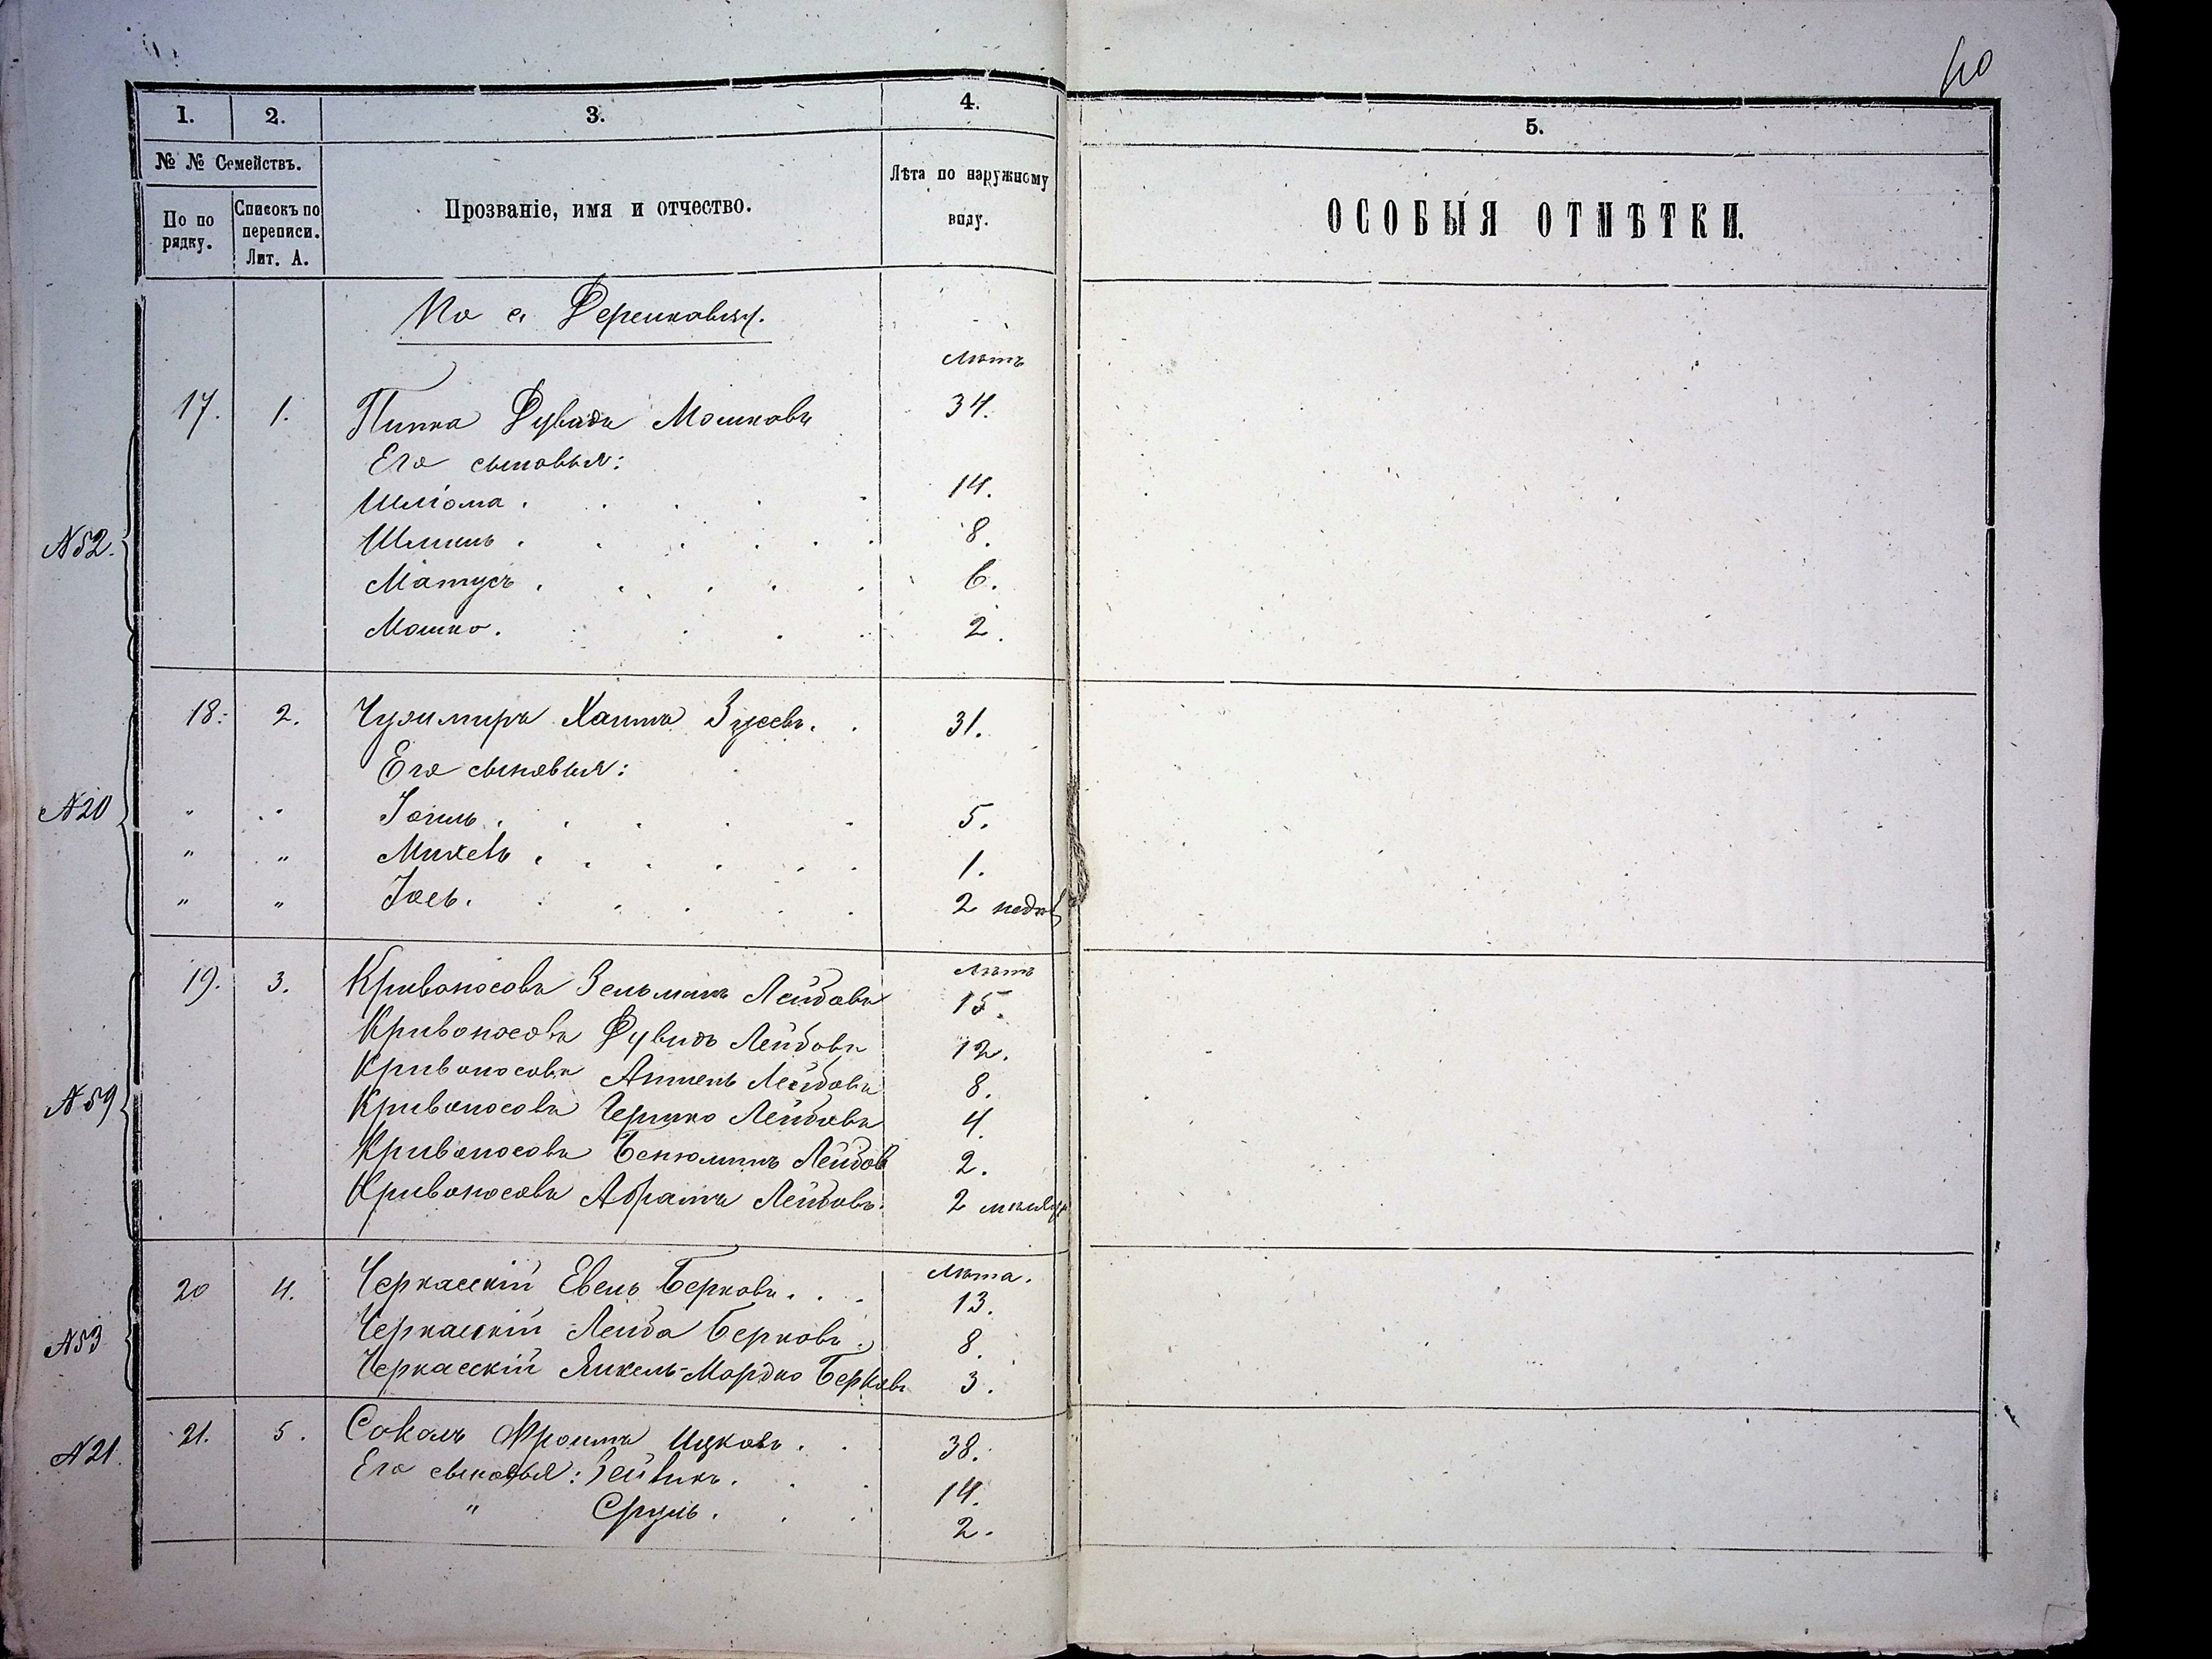 40
1. 2. 3. 4. 5.
№ № Семействъ.
По по рядку.
Списокъ по переписи. Лит. А.
Прозваніе, имя и отчество.
Лѣта по наружному виду.
ОСОБЫЯ ОТМѢТКИ.
По с. Деренковцу.
Лѣтъ
17. 1. Пипка Дувидъ Мошковъ 34.
Его сыновья:
Шліома . . . . . 14.
N52. 8.
Матусъ . . . . . 6.
Мошко. . . . . 2.
18. 2. Хаимъ Зусевъ. . 31.
Его сыновья:
N20 " " Іоиль . . . . . 5.
" " Михель . . . . . 1.
" " Іось. . . . . 2 недѣл
Лѣтъ
19. 3. Кривоносовъ Зельманъ Лейбовъ 15.
Кривоносовъ Дувидъ Лейбовъ 12.
Кривоносовъ Лейбовъ 8.
N59 Кривоносовъ Гершко Лейбовъ 4.
Кривоносовъ Бенюминъ Лейбов 2.
Кривоносовъ Абрамъ Лейбовъ. 2 мѣсяц
Лѣта.
20 4. Черкасскій Евель Берковъ. . . 13.
N53 Черкасскій Лейба Берковъ. 8.
Черкасскій Янкель-Мордко Берковъ 3.
N21. 21. 5. Сокалъ Фроимъ Ицковъ. . 38.
Его сыновья: Зейликъ. . . 14.
" Сруль. . . 2.